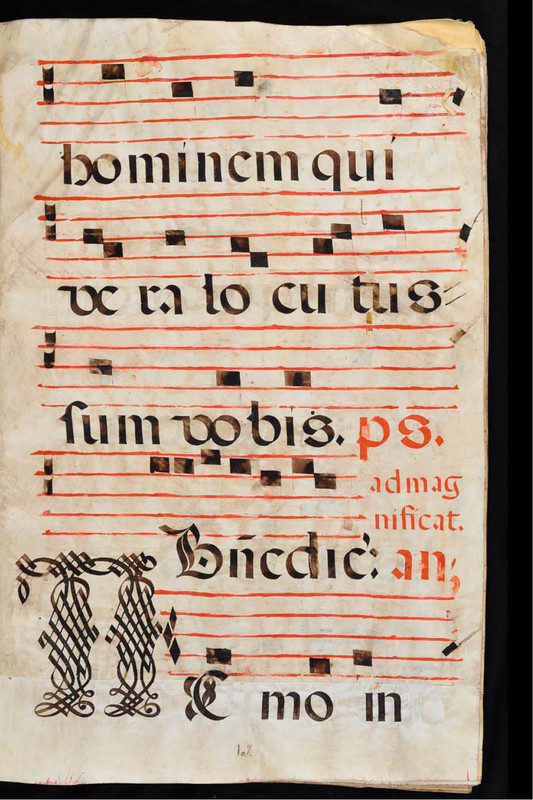 hominem qui
ve ra lo cu tus
sum vobis. ps.
ad mag
nificat.
Bñedic: an;
NE mo in